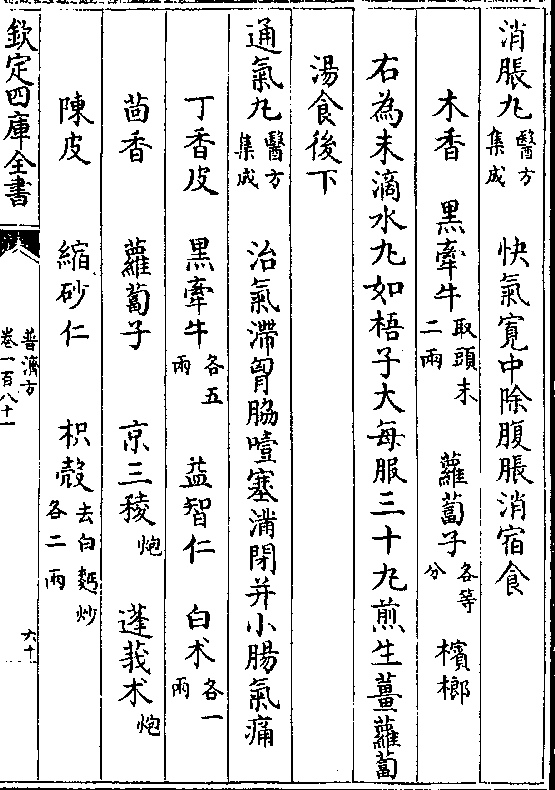 消脹丸醫方集成　快氣寛中除腹脹消宿食
木香　黒牽牛取頭末二兩　蘿蔔子各等分　檳榔
右為末滴水丸如梧子大每服三十丸煎生薑蘿蔔
湯食後下
通氣丸醫方集成　治氣滯胷脇噎塞滿閉并小腸氣痛
丁香皮　黒牽牛各五兩　益智仁　白术各一兩
茴香　蘿蔔子　京三稜炮　蓬莪术炮
陳皮　縮砂仁　枳殻去白麪炒各二兩
欽定四庫全書　普濟方卷一百八十一　六十